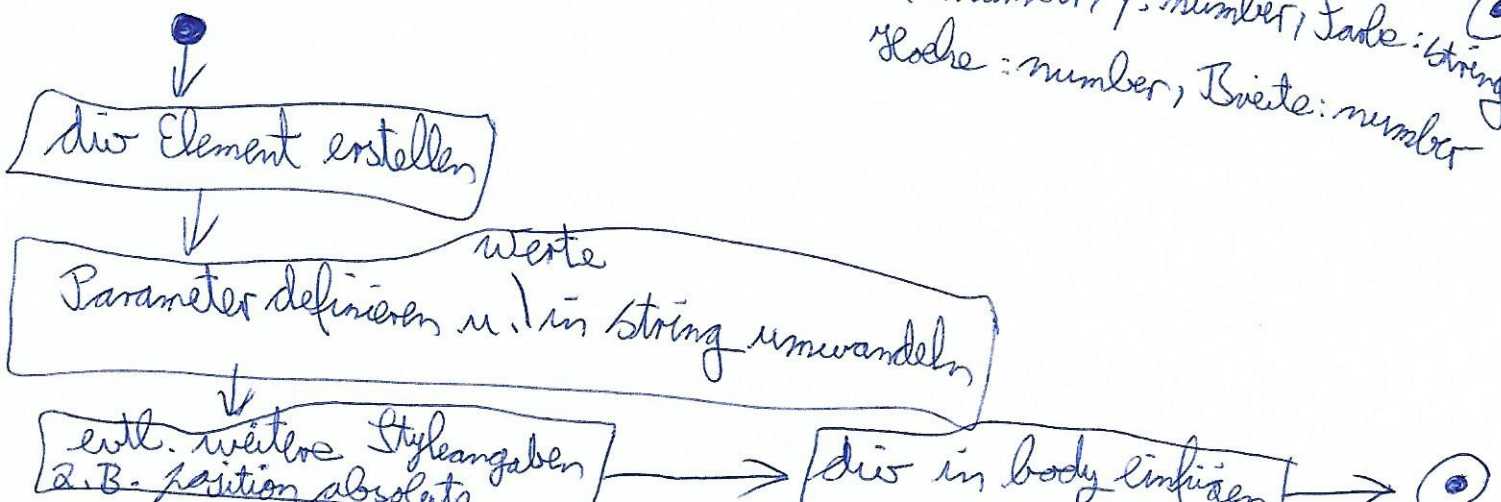 number, y: number, Farbe: string
Hoehe: number, Breite: number
div Element erstellen
Werte
Parameter definieren u. \ in string umwandeln
evtl. weitere Styleangaben
z.B. position absolute
div in body einfügen